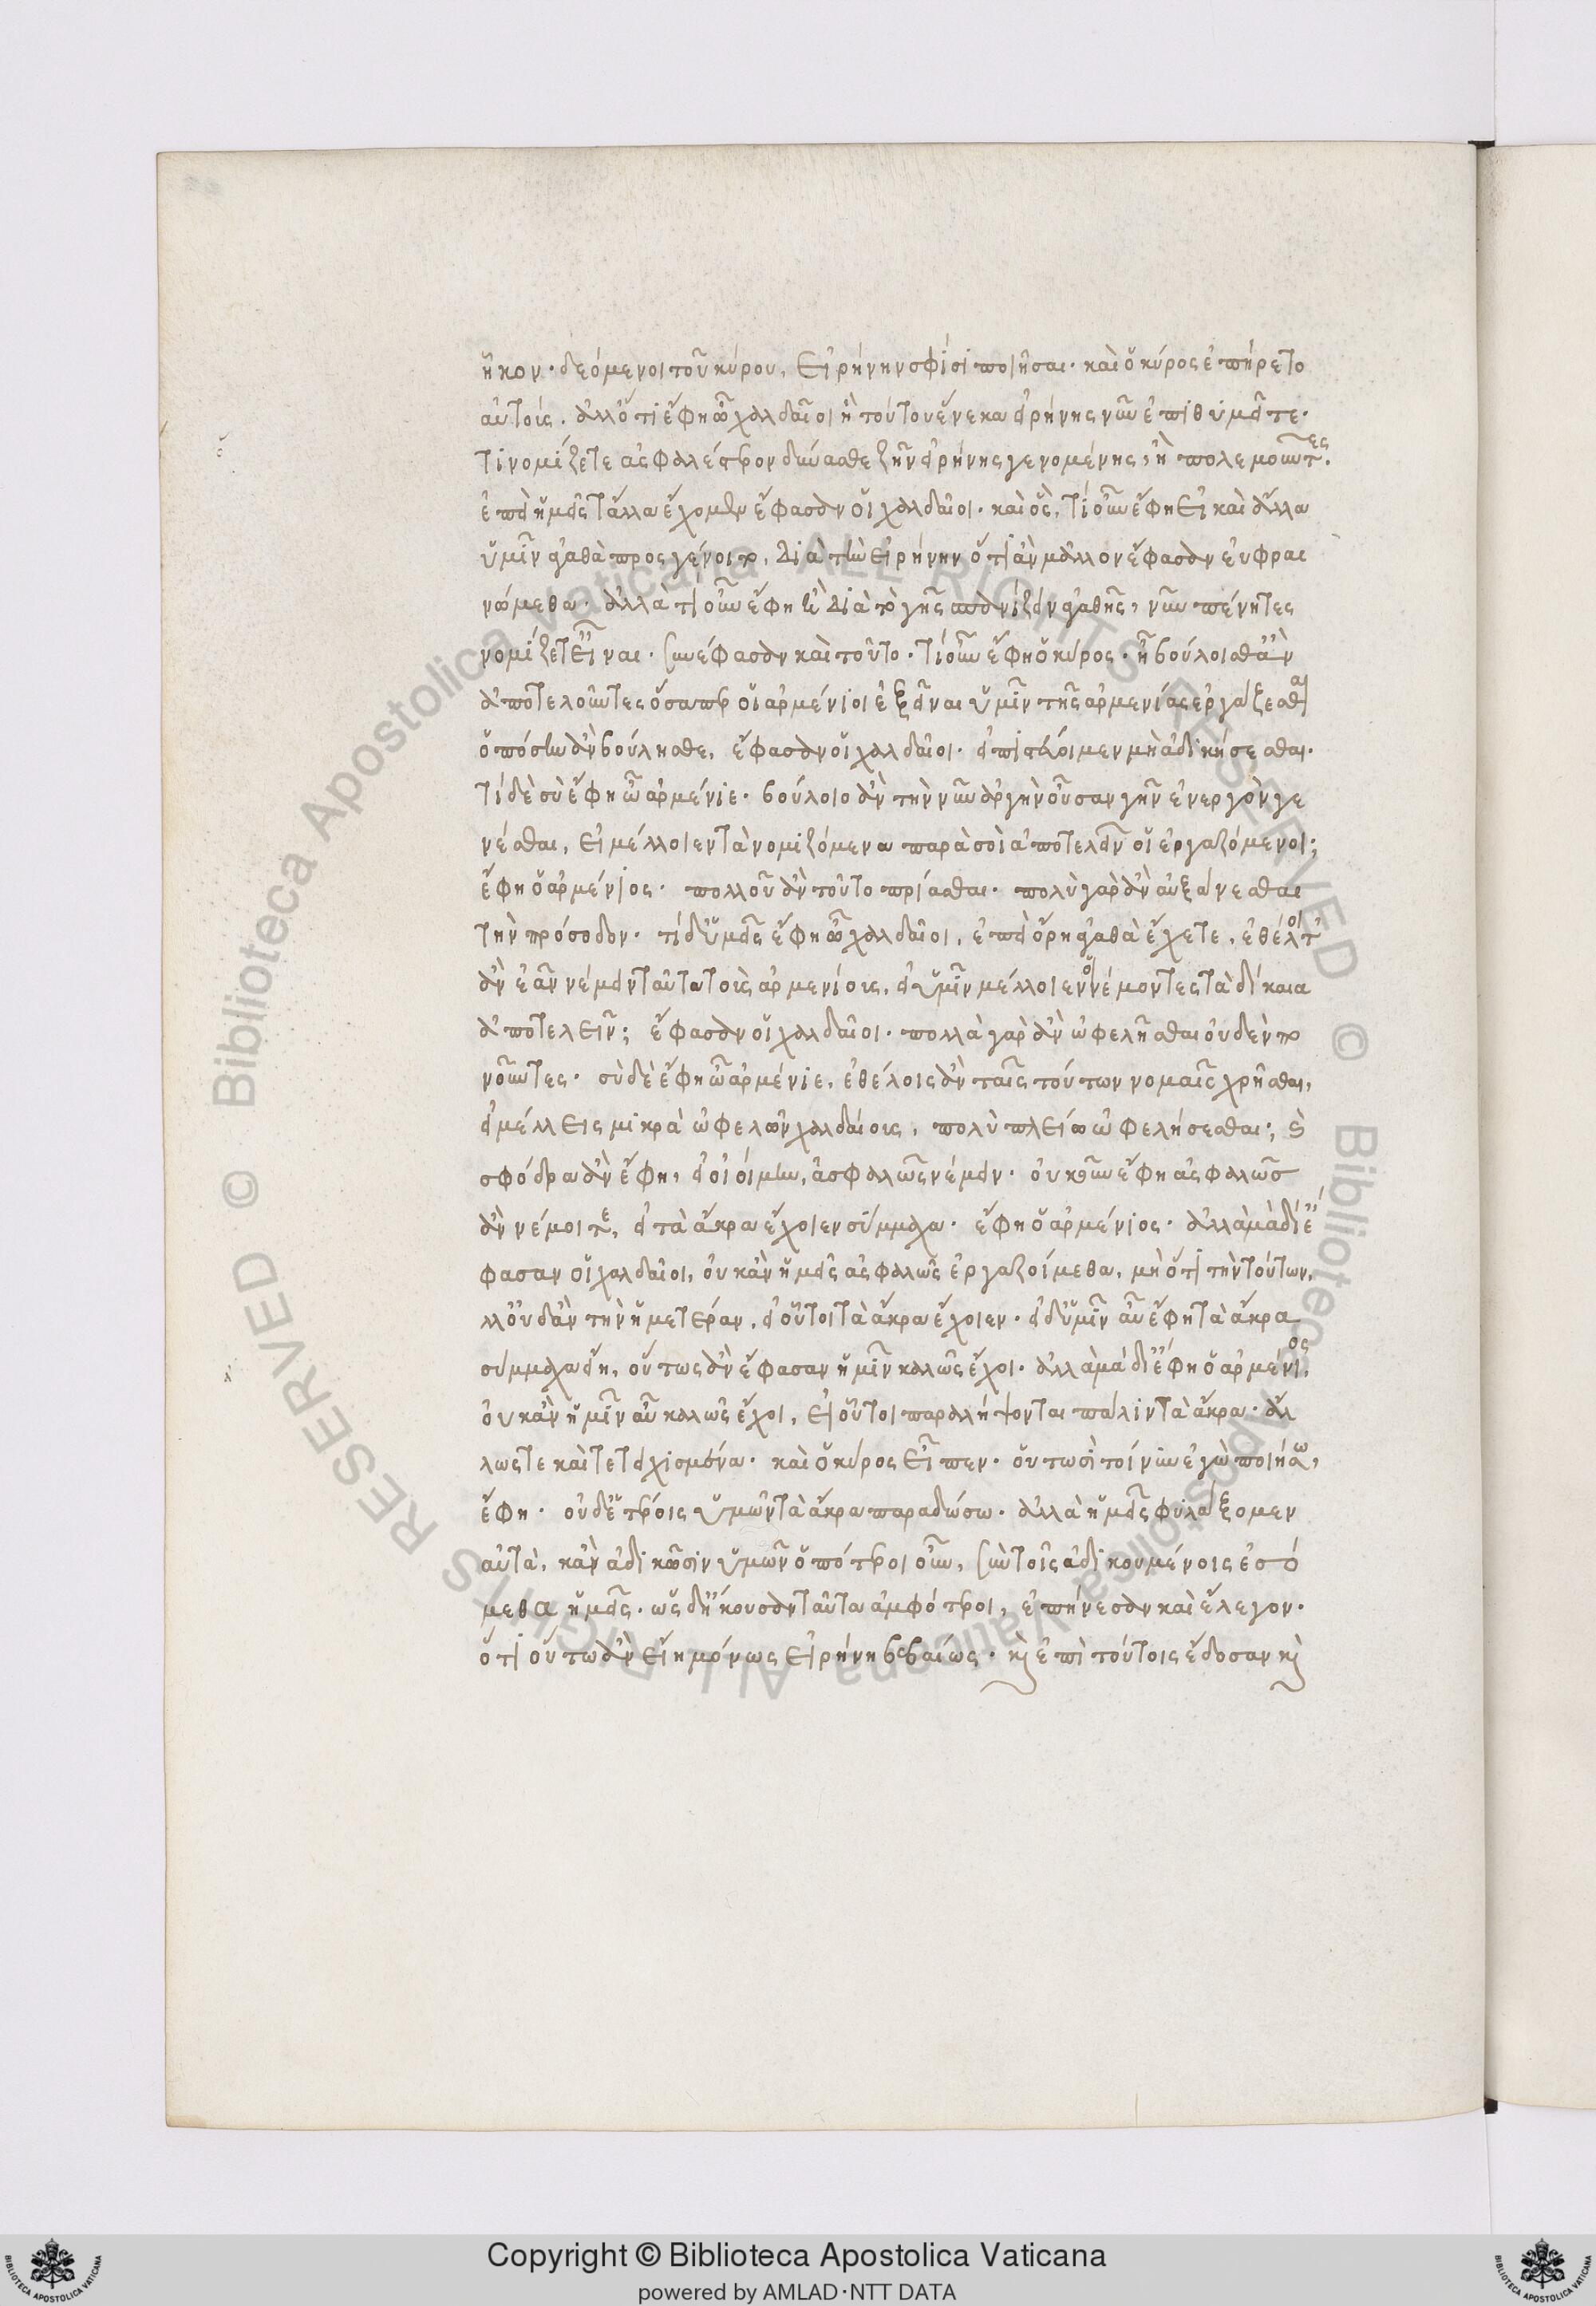 ἧκον· δεόμενοι τοῦ κύρου, εἰρήνην σφίσι ποιῆσαι· καὶ ὁ κύρος ἐπήρετο
αὐτοίς, ἀλλ' ὅτι ἔφη ὦ χαλδαῖοι ἢ τούτου ἕνεκα εἰρήνης νῦν ἐπιθυμεῖτε·
τί νομίζετε ἀσφαλέστερον δύνασθε ζῆν εἰρήνης γενομένης, ἢ πολεμοῦντες.
ἐπεὶ ἡμεῖς τἄλλα ἔχομεν ἔφασαν οἱ χαλδαῖοι· καὶ ὃς, τί οὖν ἔφη εἰ καὶ ἄλλα
ὑμῖν ἀγαθὰ προσγένοιτο, διὰ τὴν εἰρήνην ὅτι ἂν μᾶλλον ἔφασαν εὐφραι
νώμεθα· ἀλλὰ τί οὖν ἔφη ἢ διὰ τὸ γῆς σπανίζειν ἀγαθῆς, νῦν πένητες
νομίζετ' εἶναι· συνέφασαν καὶ τοῦτο· τί οὖν ἔφη ὁ κύρος· ἦ βούλοισθ' ἂν
ἀποτελοῦντες ὅσαπερ οἱ ἀρμένιοι ἐξεῖναι ὑμῖν τῆς ἀρμενίας ἐργάζεσθαι
ὁπόσην ἂν βούλησθε, ἔφασαν οἱ χαλδαῖοι· εἰ πιστεύοιμεν μὴ ἀδικήσεσθαι·
τί δὲ σὺ ἔφη ὦ ἀρμένιε· βούλοιο ἂν τὴν νῦν ἀργὴν οὖσαν γῆν ἐνεργὸν γε
νέσθαι, εἰ μέλλοιεν τὰ νομιζόμενα παρὰ σοὶ ἀποτελεῖν οἱ ἐργαζόμενοι;
ἔφη ὁ ἀρμένιος· πολλοῦ ἂν τοῦτο πρίασθαι· πολὺ γὰρ ἂν αὐξάνεσθαι
τὴν πρόσοδον· τί δ' ὑμεῖς ἔφη ὦ χαλδαῖοι, ἐπεὶ ὄρη ἀγαθὰ ἔχετε, ἐθέλοιτ'
ἂν ἐᾶν νέμειν ταῦτα τοῖς ἀρμενίοις, εἰ ὑμῖν μέλλοιεν οἱ νέμοντες τὰ δίκαια
ἀποτελεῖν; ἔφασαν οἱ χαλδαῖοι· πολλὰ γὰρ ἂν ὠφελῆσθαι οὐδὲν πο
νοῦντες· σὺ δὲ ἔφη ὦ ἀρμένιε, ἐθέλοις ἂν ταῖς τούτων νομαῖς χρῆσθαι,
εἰ μέλλεις μικρὰ ὠφελῶν χαλδαίοις, πολὺ πλείω ὠφελήσεσθαι; καὶ
σφόδρα ἂν ἔφη, εἰ οἰοίμην, ἀσφαλῶς νέμειν· οὐκοῦν ἔφη ἀσφαλῶς
ἂν νέμοιτε, εἰ τὰ ἄκρα ἔχοιεν σύμμαχα· ἔφη ὁ ἀρμένιος· ἀλλὰ μὰ δί' ἔ
φασαν οἱ χαλδαῖοι, οὐκ ἂν ἡμεῖς ἀσφαλῶς ἐργαζοίμεθα, μὴ ὅτι τὴν τούτων,
λλ' οὐδ' ἂν τὴν ἡμετέραν, εἰ οὗτοι τὰ ἄκρα ἔχοιεν· εἰ δ' ὑμῖν αὖ ἔφη τὰ ἄκρα
σύμμαχα εἴη, οὕτως ἂν ἔφασαν ἡμῖν καλῶς ἔχοι· ἀλλὰ μὰ δί' ἔφη ὁ ἀρμένιος,
οὐκ ἂν ἡμῖν αὖ καλῶς ἔχοι, εἰ οὗτοι παραλήψονται πάλιν τὰ ἄκρα· ἄλ
λως τε καὶ τετειχισμένα· καὶ ὁ κύρος εἶπεν· οὑτωσὶ τοίνυν ἐγὼ ποιήσω,
ἔφη· οὐδετέροις ὑμῶν τὰ ἄκρα παραδώσω· ἀλλὰ ἡμεῖς φυλάξομεν
αὐτὰ, κἂν ἀδικῶσιν ὑμῶν ὁπότεροι οὖν, σὺν τοῖς ἀδικουμένοις ἐσό
μεθα ἡμεῖς· ὡς δ' ἤκουσαν ταῦτα ἀμφότεροι, ἐπήνεσαν καὶ ἔλεγον·
ὅτι οὕτω ἂν εἴη μόνως εἰρήνη βεβαίως· καὶ ἐπὶ τούτοις ἔδοσαν καὶ
Copyright © Biblioteca Apostolica Vaticana
powered by AMLAD·NTT DATA